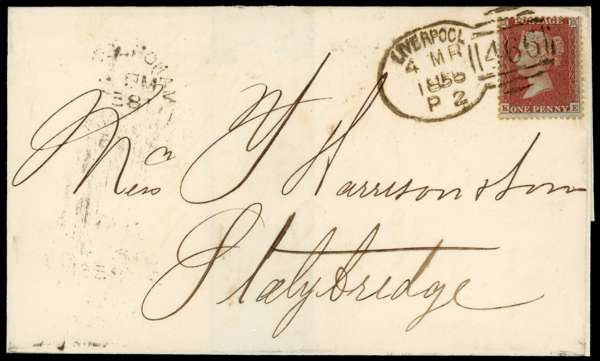 LIVERPOOL
4 MR
1858
P 2
466
POSTAGE
E E
ONE PENNY
Mess T Harrison & Son
Stalybridge